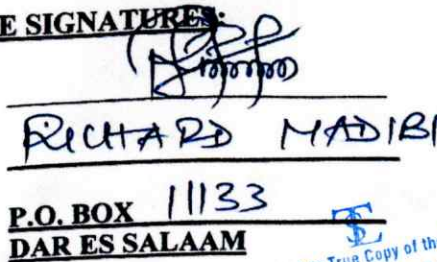 E SIGNATURES:
RICHARD MADIBI
P.O. BOX 11133
DAR ES SALAAM
True Copy of the